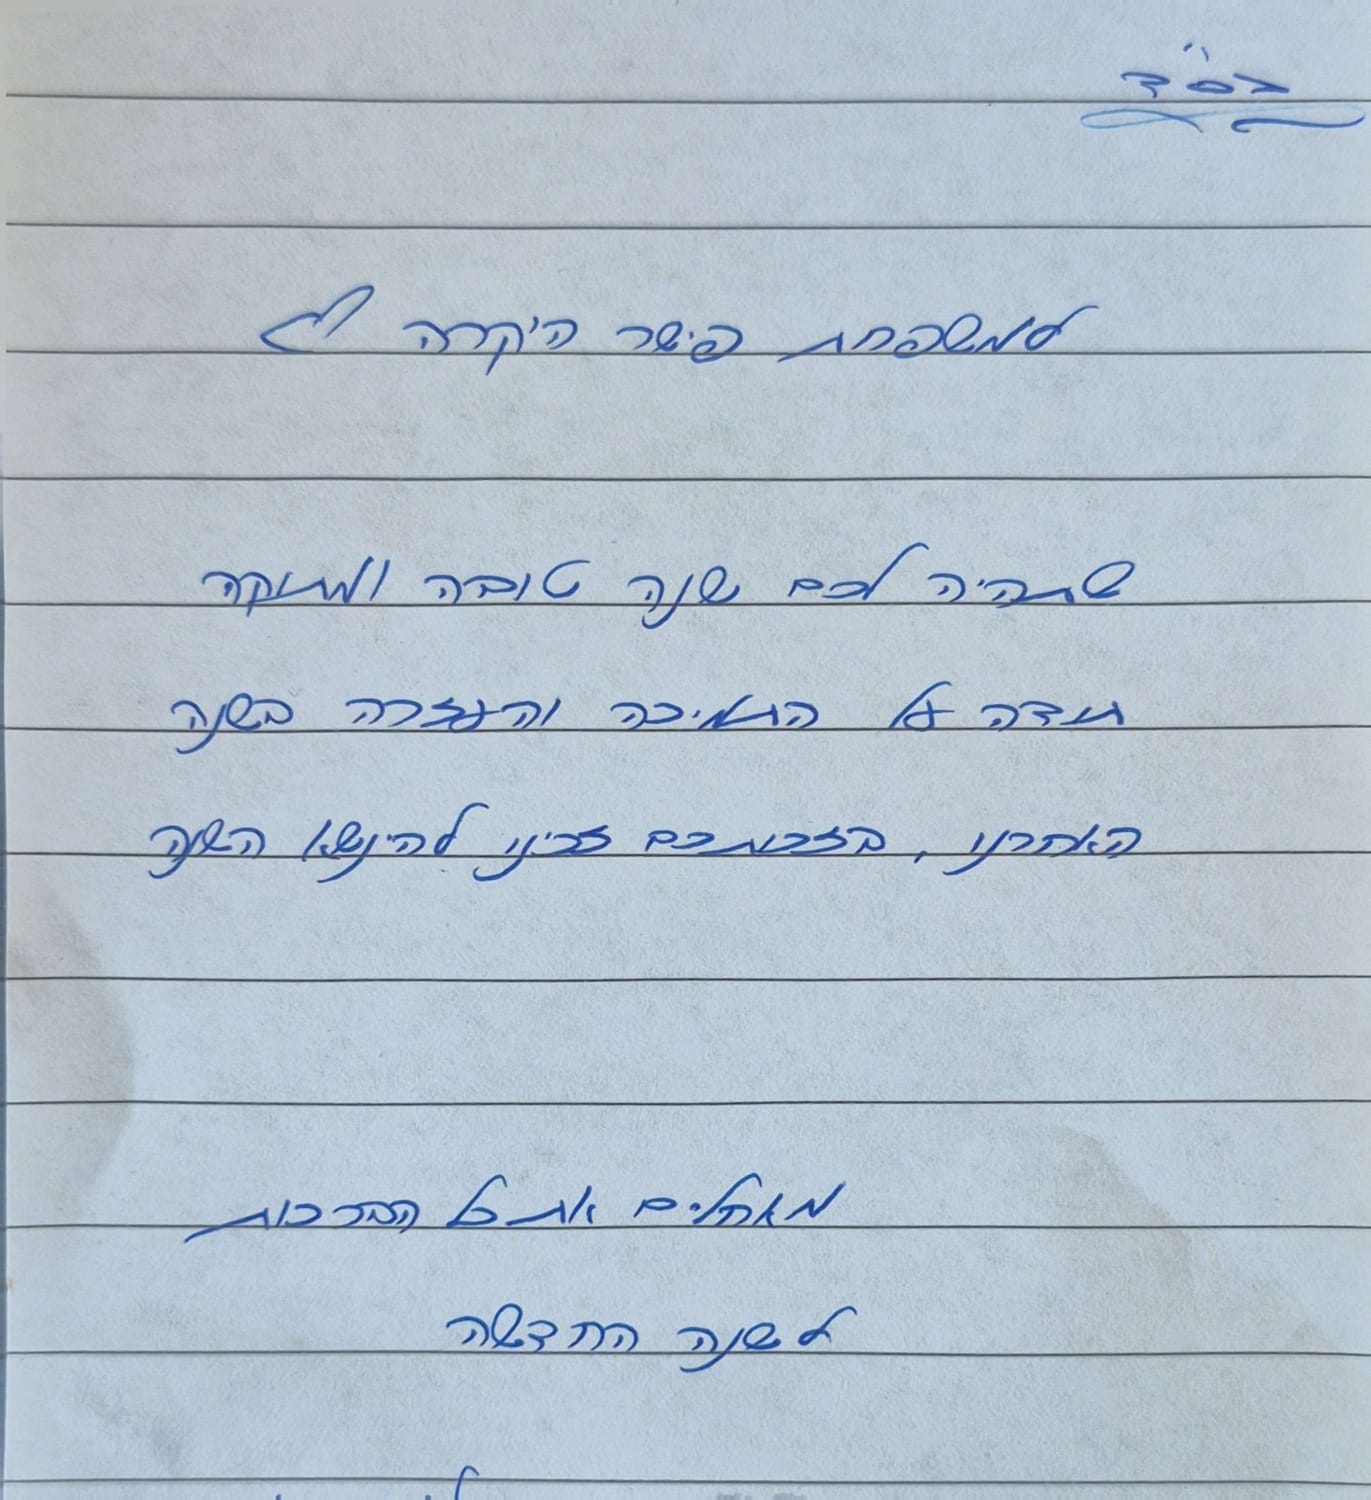 בס"ד
למשפחת פישר היקרה
שתהיה לכם שנה טובה ומתוקה
תודה על התמיכה והעזרה בשנה
האחרנו, בזכותכם זכינו להינשא השנה
מאחלים את כל הברכות
לשנה החדשה